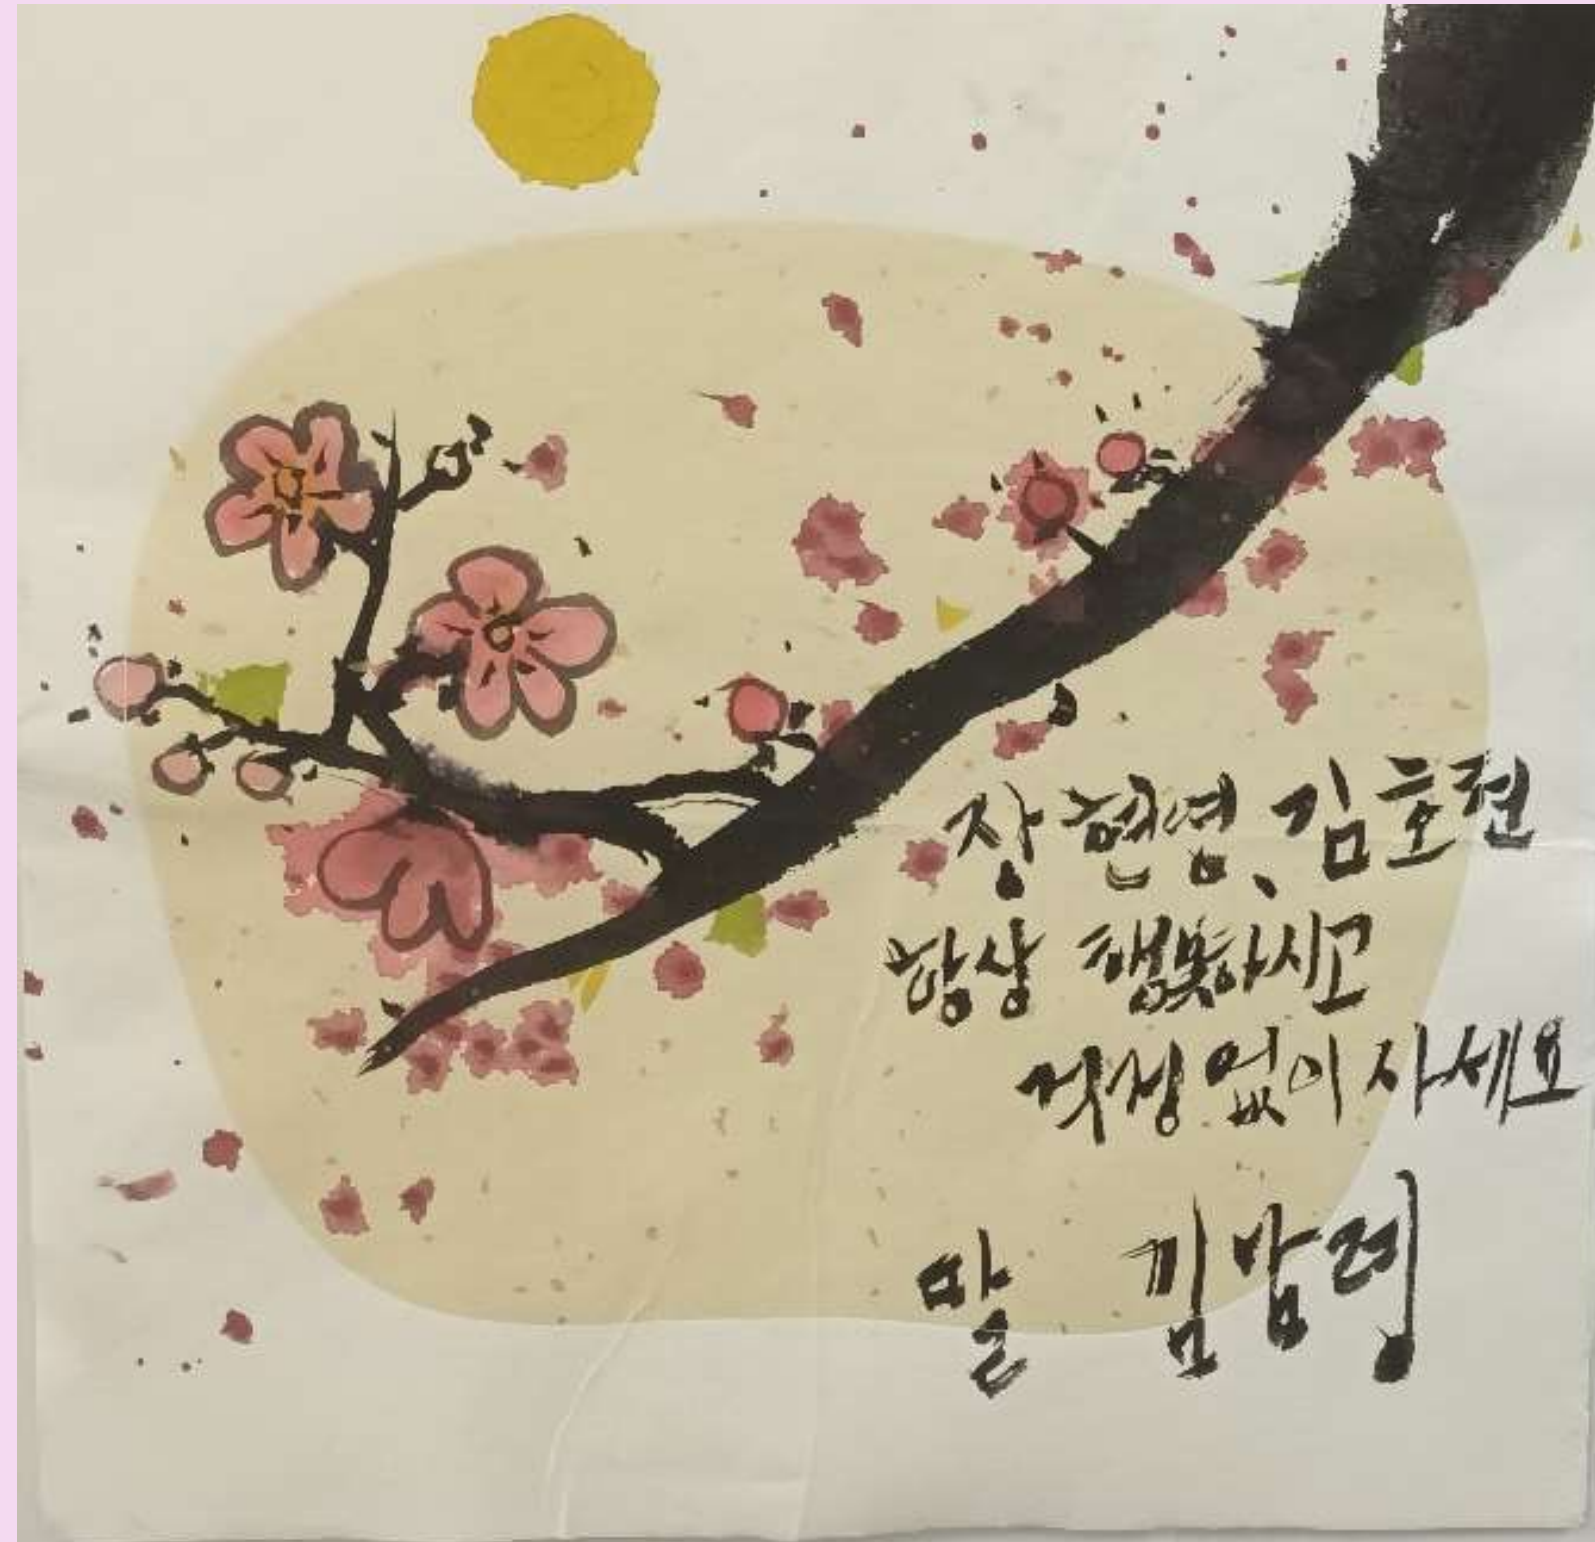 장현영、김호현
항상 행복하시고
걱정 없이 사세요
딸 김밤령